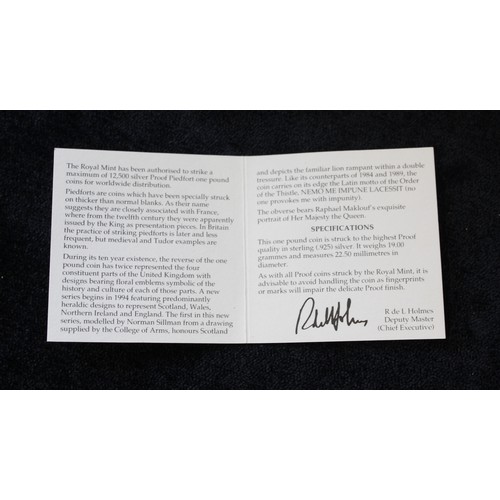 The Royal Mint has been authorised to strike a
maximum of 12,500 silver Proof Piedfort one pound
coins for worldwide distribution.
Piedforts are coins which have been specially struck
on thicker than normal blanks. As their name
suggests they are closely associated with France,
where from the twelfth century they were apparently
issued by the King as presentation pieces. In Britain
the practice of striking piedforts is later and less
frequent, but medieval and Tudor examples are
known.
During its ten year existence, the reverse of the one
pound coin has twice represented the four
constituent parts of the United Kingdom with
designs bearing floral emblems symbolic of the
history and culture of each of those parts. A new
series begins in 1994 featuring predominantly
heraldic designs to represent Scotland, Wales,
Northern Ireland and England. The first in this new
series, modelled by Norman Sillman from a drawing
supplied by the College of Arms, honours Scotland
and depicts the familiar lion rampant within a double
tressure. Like its counterparts of 1984 and 1989, the
coin carries on its edge the Latin motto of the Order
of the Thistle, NEMO ME IMPUNE LACESSIT (no
one provokes me with impunity).
The obverse bears Raphael Maklouf's exquisite
portrait of Her Majesty the Queen.
SPECIFICATIONS
This one pound coin is struck to the highest Proof
quality in sterling (.925) silver. It weighs 19.00
grammes and measures 22.50 millimetres in
diameter.
As with all Proof coins struck by the Royal Mint, it is
advisable to avoid handling the coin as fingerprints
or marks will impair the delicate Proof finish.
R de L Holmes
Deputy Master
(Chief Executive)